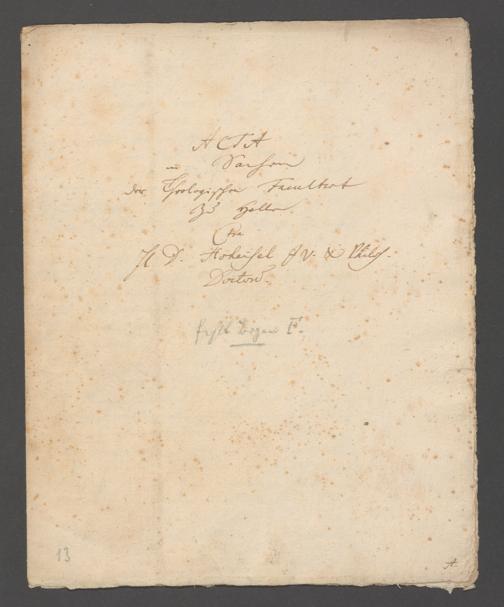 ACTA
in Sachen
der Theologischen Facultaet
zu Halle
Ctra
H D. Hoheisel J V. & Philos.
Doctor.
fehlt Bogen F.
13
A